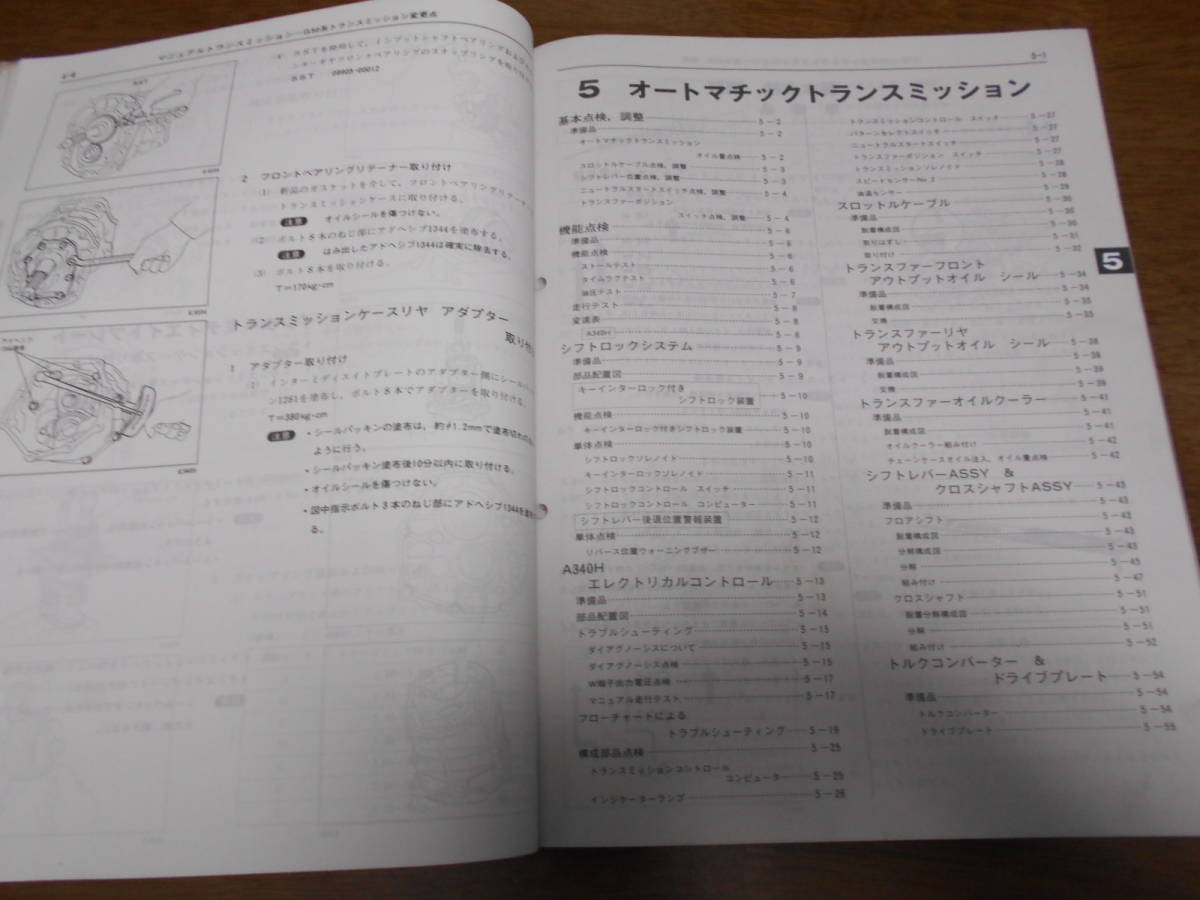 マニュアルトランスミッション—G50系トランスミッション変更点
SST 09905-00012
2 フロントベアリングリテーナー取り付け
(1) 新品のガスケットを介して、フロントベアリングリテーナー
トランスミッションケースに取り付ける。
注意 オイルシールを傷つけない。
(2) ボルト8本のねじ部にアドヘシブ1344を塗布する。
注意 はみ出したアドヘシブ1344は確実に除去する。
(3) ボルト8本を取り付ける。
T=170kg-cm
トランスミッションケースリヤ アダプター
取り付け
1 アダプター取り付け
(1) インターミディエイトプレートのアダプター側にシールパッキ
ン1281を塗布し、ボルト8本でアダプターを取り付ける。
T=380kg-cm
注意 ・シールパッキンの塗布は、約φ1.2mmで塗布切れのない
ように行う。
・シールパッキン塗布後10分以内に取り付ける。
・オイルシールを傷つけない。
・図中指示ボルト3本のねじ部にアドヘシブ1344を塗布す
る。
5-1
5 オートマチックトランスミッション
基本点検，調整 5-2
準備品 5-2
オートマチックトランスミッション
オイル量点検 5-2
スロットルケーブル点検，調整 5-3
シフトレバー位置点検，調整 5-3
ニュートラルスタートスイッチ点検，調整 5-4
トランスファーポジション
スイッチ点検，調整 5-4
機能点検 5-6
準備品 5-6
機能点検 5-6
ストールテスト 5-6
タイムラグテスト 5-6
油圧テスト 5-7
走行テスト 5-8
変速表 5-8
A340H 5-8
シフトロックシステム 5-9
準備品 5-9
部品配置図 5-9
キーインターロック付き
シフトロック装置 5-10
機能点検 5-10
キーインターロック付きシフトロック装置 5-10
単体点検 5-10
シフトロックソレノイド 5-10
キーインターロックソレノイド 5-11
シフトロックコントロール スイッチ 5-11
シフトロックコントロール コンピューター 5-11
シフトレバー後退位置警報装置 5-12
単体点検 5-12
リバース位置ウォーニングブザー 5-12
A340H
エレクトリカルコントロール 5-13
準備品 5-13
部品配置図 5-14
トラブルシューティング 5-15
ダイアグノーシスについて 5-15
ダイアグノーシス点検 5-15
W端子出力電圧点検 5-17
マニュアル走行テスト 5-17
フローチャートによる
トラブルシューティング 5-19
構成部品点検 5-25
トランスミッションコントロール
コンピューター 5-25
インジケーターランプ 5-26
トランスミッションコントロール スイッチ 5-27
パターンセレクトスイッチ 5-27
ニュートラルスタートスイッチ 5-27
トランスファーポジション スイッチ 5-27
トランスミッションソレノイド 5-28
スピードセンサーNo.2 5-28
油温センサー 5-29
スロットルケーブル 5-30
準備品 5-30
脱着構成図 5-30
取りはずし 5-31
取り付け 5-32
トランスファーフロント
アウトプットオイル シール 5-34
準備品 5-34
脱着構成図 5-35
交換 5-35
トランスファーリヤ
アウトプットオイル シール 5-38
準備品 5-38
脱着構成図 5-39
交換 5-39
トランスファーオイルクーラー 5-41
準備品 5-41
脱着構成図 5-41
オイルクーラー組み付け 5-42
チェーンケースオイル注入，オイル量点検 5-42
シフトレバーASSY &
クロスシャフトASSY 5-43
準備品 5-43
フロアシフト 5-43
脱着構成図 5-43
分解構成図 5-43
分解 5-45
組み付け 5-47
クロスシャフト 5-51
脱着分解構成図 5-51
分解 5-51
組み付け 5-52
トルクコンバーター &
ドライブプレート 5-54
準備品 5-54
トルクコンバーター 5-54
ドライブプレート 5-55
5